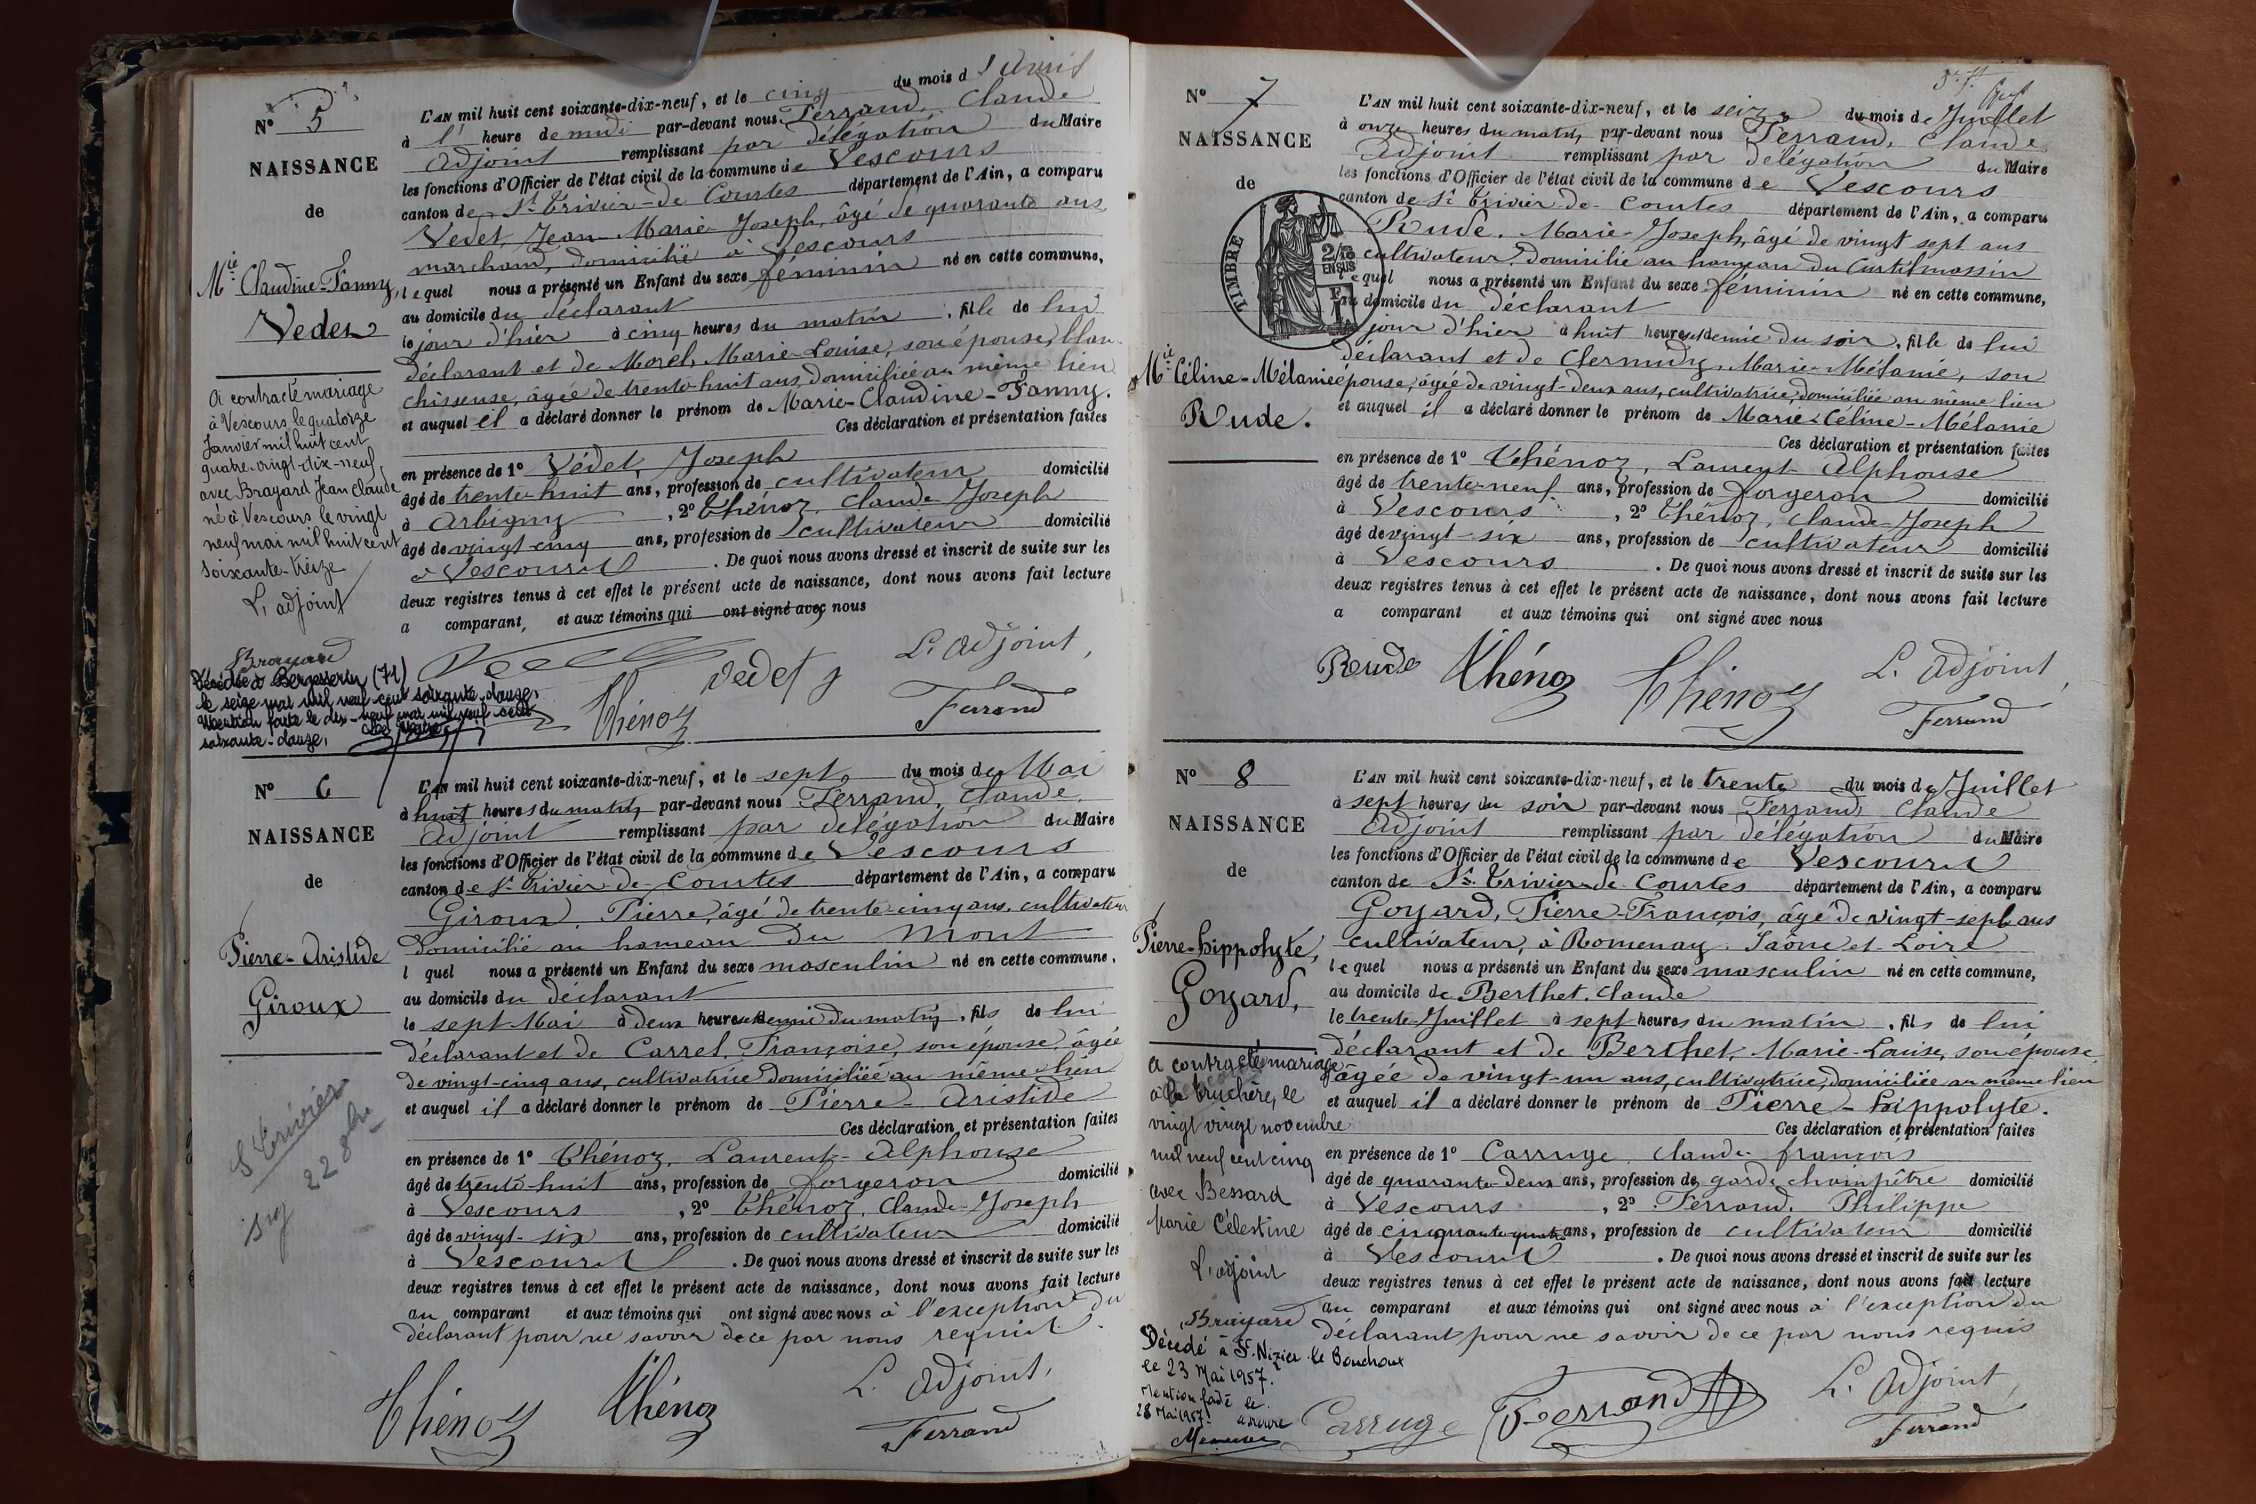 N° 5
NAISSANCE
de
Mie Claudine-Fanny,
Vedet
a contracté mariage
à Vescours le quatorze
Janvier mil huit cent
quatre-vingt-dix-neuf,
avec Brayard Jean Claude
né à Vescours le vingt
neuf mai mil huit cent
soixante-treize
L'adjoint
Brayard
Décédée à Berzesertn (71)
le seize mai mil neuf cent soixante-douze,
Mention faite le dix-neuf mai mil neuf cent
soixante-douze,
L'AN mil huit cent soixante-dix-neuf, et le cinq du mois d'Avril
à l' heure de midi par-devant nous Ferrand, Claude
adjoint remplissant par délégation du Maire
les fonctions d'Officier de l'état civil de la commune de Vescours
canton de St Trivier-de Courtes département de l'Ain, a comparu
Vedet, Jean-Marie-Joseph, âgé de quarante ans,
marchand, domicilié à Vescours
lequel nous a présenté un Enfant du sexe féminin né en cette commune,
au domicile du déclarant
le jour d'hier à cinq heures du matin, fille de lui
déclarant et de Morel, Marie-Louise, son épouse, blan
chisseuse, âgée de trente-huit ans, domiciliée au même lieu
et auquel il a déclaré donner le prénom de Marie-Claudine-Fanny.
Ces déclaration et présentation faites
en présence de 1° Védet, Joseph
âgé de trente-huit ans, profession de cultivateur domicilié
à Arbigny, 2° Thénoz, Claude-Joseph
âgé de vingt-cinq ans, profession de cultivateur domicilié
à Vescours. De quoi nous avons dressé et inscrit de suite sur les
deux registres tenus à cet effet le présent acte de naissance, dont nous avons fait lecture
a comparant, et aux témoins qui ont signé avec nous
Vedet j L. adjoint,
Thénoz Ferrand
N° 6
NAISSANCE
de
Pierre-Aristide
Giroux
St Trivier
22 8bre
L'AN mil huit cent soixante-dix-neuf, et le sept du mois de Mai
à huit heures du matin, par-devant nous Ferrand, Claude,
adjoint remplissant par délégation du Maire
les fonctions d'Officier de l'état civil de la commune de Vescours
canton de St Trivier-de-Courtes département de l'Ain, a comparu
Giroux, Pierre, âgé de trente-cinq ans, cultivateur
domicilié au hameau du Mont
l quel nous a présenté un Enfant du sexe masculin né en cette commune,
au domicile du déclarant
le sept Mai à deux heures et demie du matin, fils de lui
déclarant et de Carrel, Françoise, son épouse, âgée
de vingt-cinq ans, cultivatrice domiciliée au même lieu
et auquel il a déclaré donner le prénom de Pierre-Aristide
Ces déclaration et présentation faites
en présence de 1° Thénoz, Laurent-Alphonse
âgé de trente-huit ans, profession de forgeron domicilié
à Vescours, 2° Thénoz, Claude-Joseph
âgé de vingt-six ans, profession de cultivateur domicilié
à Vescours. De quoi nous avons dressé et inscrit de suite sur les
deux registres tenus à cet effet le présent acte de naissance, dont nous avons fait lecture
au comparant et aux témoins qui ont signé avec nous à l'exception du
déclarant pour ne savoir de ce par nous requis.
Thénoz Thénoz L. adjoint,
Ferrand
N° 7
NAISSANCE
de
TIMBRE
2/10
EN SUS
Mie Céline-Mélanie
Rude.
L'AN mil huit cent soixante-dix-neuf, et le seize du mois de Juillet
à onze heures du matin, par-devant nous Ferrand, Claude
Adjoint remplissant par délégation du Maire
les fonctions d'Officier de l'état civil de la commune de Vescours
canton de St Trivier-de-Courtes département de l'Ain, a comparu
Rude, Marie-Joseph, âgé de vingt sept ans
cultivateur, domicilié au hameau du Curtilmassin
lequel nous a présenté un Enfant du sexe féminin né en cette commune,
au domicile du déclarant
jour d'hier à huit heures et demie du soir, fille de lui
déclarant et de Clermidy, Marie-Mélanie, son
épouse, âgée de vingt-deux ans, cultivatrice, domiciliée au même lieu
et auquel il a déclaré donner le prénom de Marie-Céline-Mélanie
Ces déclaration et présentation faites
en présence de 1° Thénoz, Laurent Alphonse
âgé de trente-neuf ans, profession de forgeron domicilié
à Vescours, 2° Thénoz, Claude-Joseph
âgé de vingt-six ans, profession de cultivateur domicilié
à Vescours. De quoi nous avons dressé et inscrit de suite sur les
deux registres tenus à cet effet le présent acte de naissance, dont nous avons fait lecture
a comparant et aux témoins qui ont signé avec nous
Rude Thénoz Thénoz L. adjoint,
Ferrand
N° 8
NAISSANCE
de
Pierre-hippolyte,
Goyard,
a contracté mariage
à la truchère, le
vingt vingt novembre
mil neuf cent cinq
avec Bessard
Marie Célestine
L'adjoint
Brayard
Décédé à St. Nizier le Bouchoux
le 23 Mai 1957.
Mention faite le
28 Mai 1957.
L'AN mil huit cent soixante-dix-neuf, et le trente du mois de Juillet
à sept heures du soir par-devant nous Ferrand Claude
Adjoint remplissant par délégation du Maire
les fonctions d'Officier de l'état civil de la commune de Vescours
canton de St. Trivier-de-Courtes département de l'Ain, a comparu
Goyard, Pierre-François, âgé de vingt-sept ans
cultivateur, à Romenay Saône-et-Loire
lequel nous a présenté un Enfant du sexe masculin né en cette commune,
au domicile de Berthet, Claude
le trente Juillet à sept heures du matin, fils de lui
déclarant et de Berthet, Marie-Louise, son épouse,
âgée de vingt-un ans, cultivatrice, domiciliée au même lieu
et auquel il a déclaré donner le prénom de Pierre-hippolyte.
Ces déclaration et présentation faites
en présence de 1° Carruge, Claude-françois
âgé de quarante-deux ans, profession de garde champêtre domicilié
à Vescours, 2° Ferrand, Philippe
âgé de cinquante quatre ans, profession de cultivateur domicilié
à Vescours. De quoi nous avons dressé et inscrit de suite sur les
deux registres tenus à cet effet le présent acte de naissance, dont nous avons fait lecture
au comparant et aux témoins qui ont signé avec nous à l'exception du
déclarant pour ne savoir de ce par nous requis
Carruge Ferrand L. Adjoint,
Ferrand